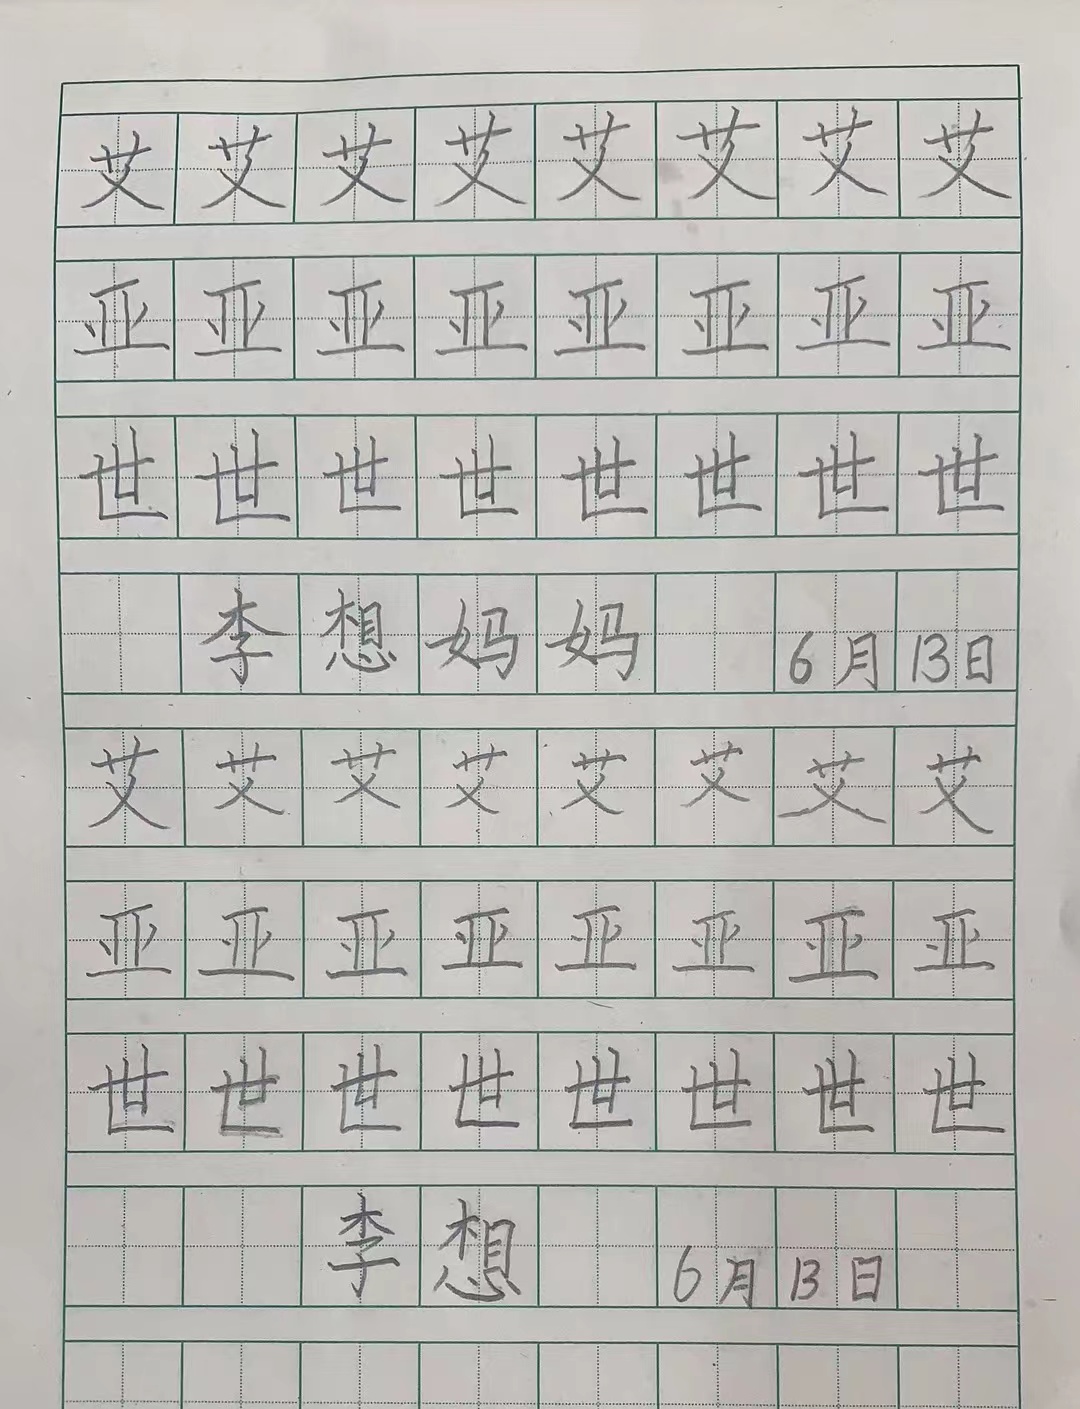 艾艾艾艾艾艾艾艾
亚亚亚亚亚亚亚亚
世世世世世世世世
李想妈妈 6月13日
艾艾艾艾艾艾艾艾
亚亚亚亚亚亚亚亚
世世世世世世世世
李想 6月13日